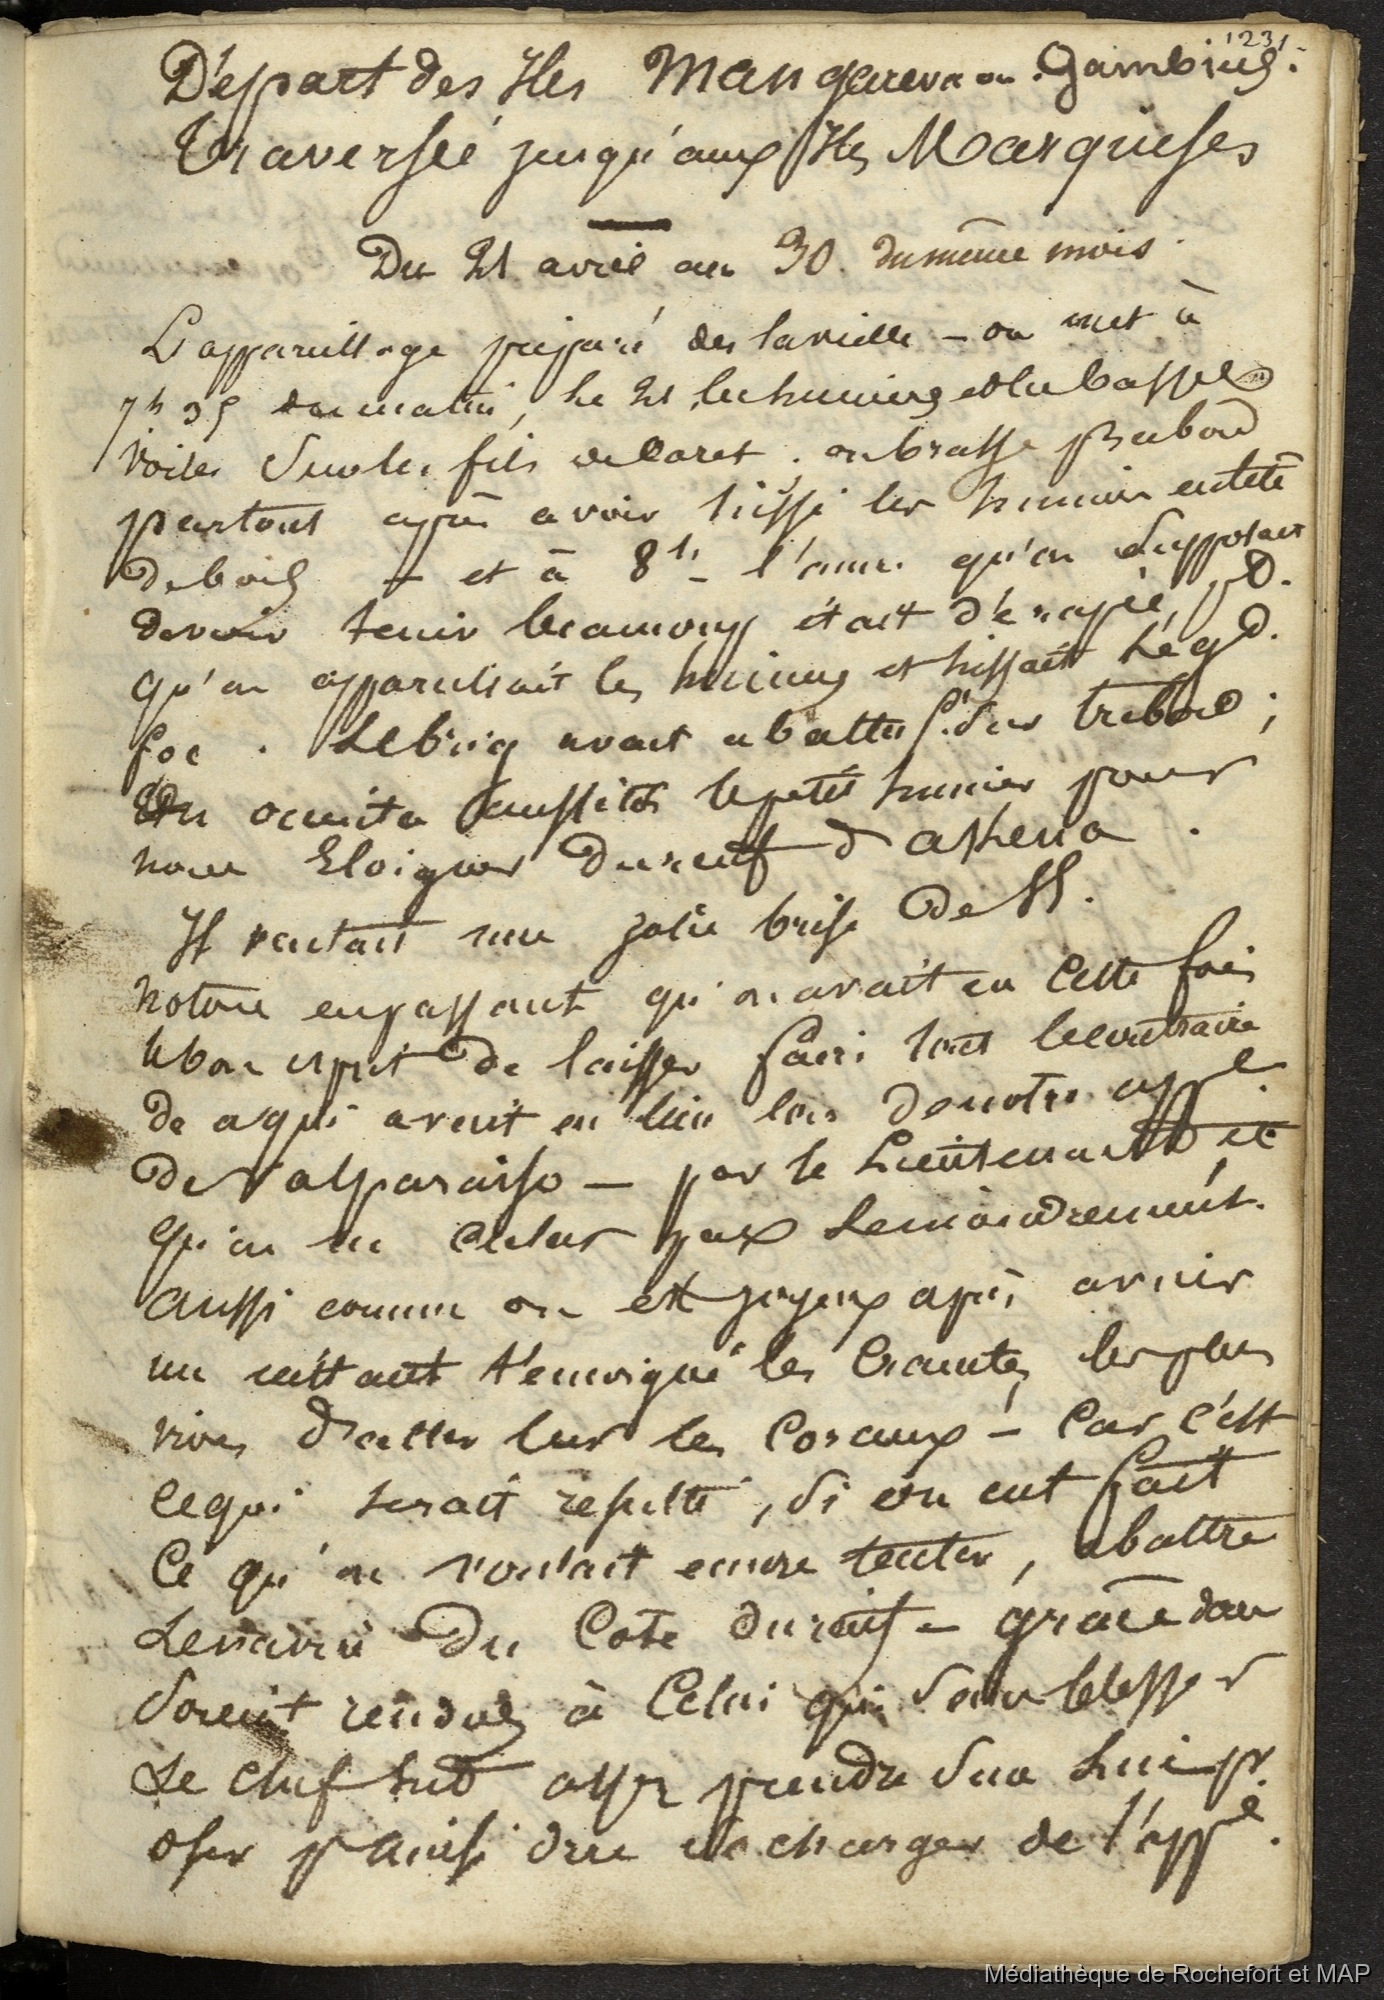 1231
Départ des Iles Mangareva ou Gambier.
Traversée jusqu'aux Iles Marquises
Du 21 avril au 30 du même mois.
L'appareillage préparé dès la veille - on met à
7h 35 du matin, le 21 les huniers et les basses
voiles sur les fils de caret. on brasse Babord
partout après avoir hissé les huniers en tête
de bois - et à 8h - l'ancre qu'on supposait
devoir tenir beaucoup était dérapée, pd.
qu'on appareillait les huniers et hissait le gd.
foc. Le brig avait abattu sur tribord;
on orienta aussitôt le petit hunier pour
nous Eloigner du récif d'akena.
Il ventait une jolie brise de
notons en passant qu'on avait eu cette fois
le bon esprit de laisser faire tout le contraire
de ce qui avait eu lieu lors de notre appge.
de Valparaiso - par le Lieutenant
qu'on ne cula pas le moindrement.
aussi comme on est joyeux après avoir
un instant témoigné les craintes les plus
vives d'aller sur les Coraux - Car c'est
ce qui serait résulté, si on eut fait
Ce qu'on voulait encore tenter, abattre
Le navire du Coté du récif - grâce donc
soient rendues à Celui qui sans blesser
Le chef sut assez prendre sur Lui pr.
oser pr ainsi dire se charger de l'appge.
Médiathèque de Rochefort et MAP